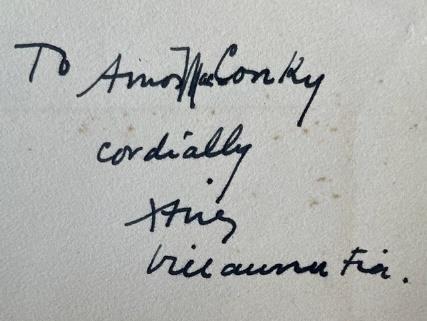 To Amos MacConky
cordially
Xavier
Villaurrutia.